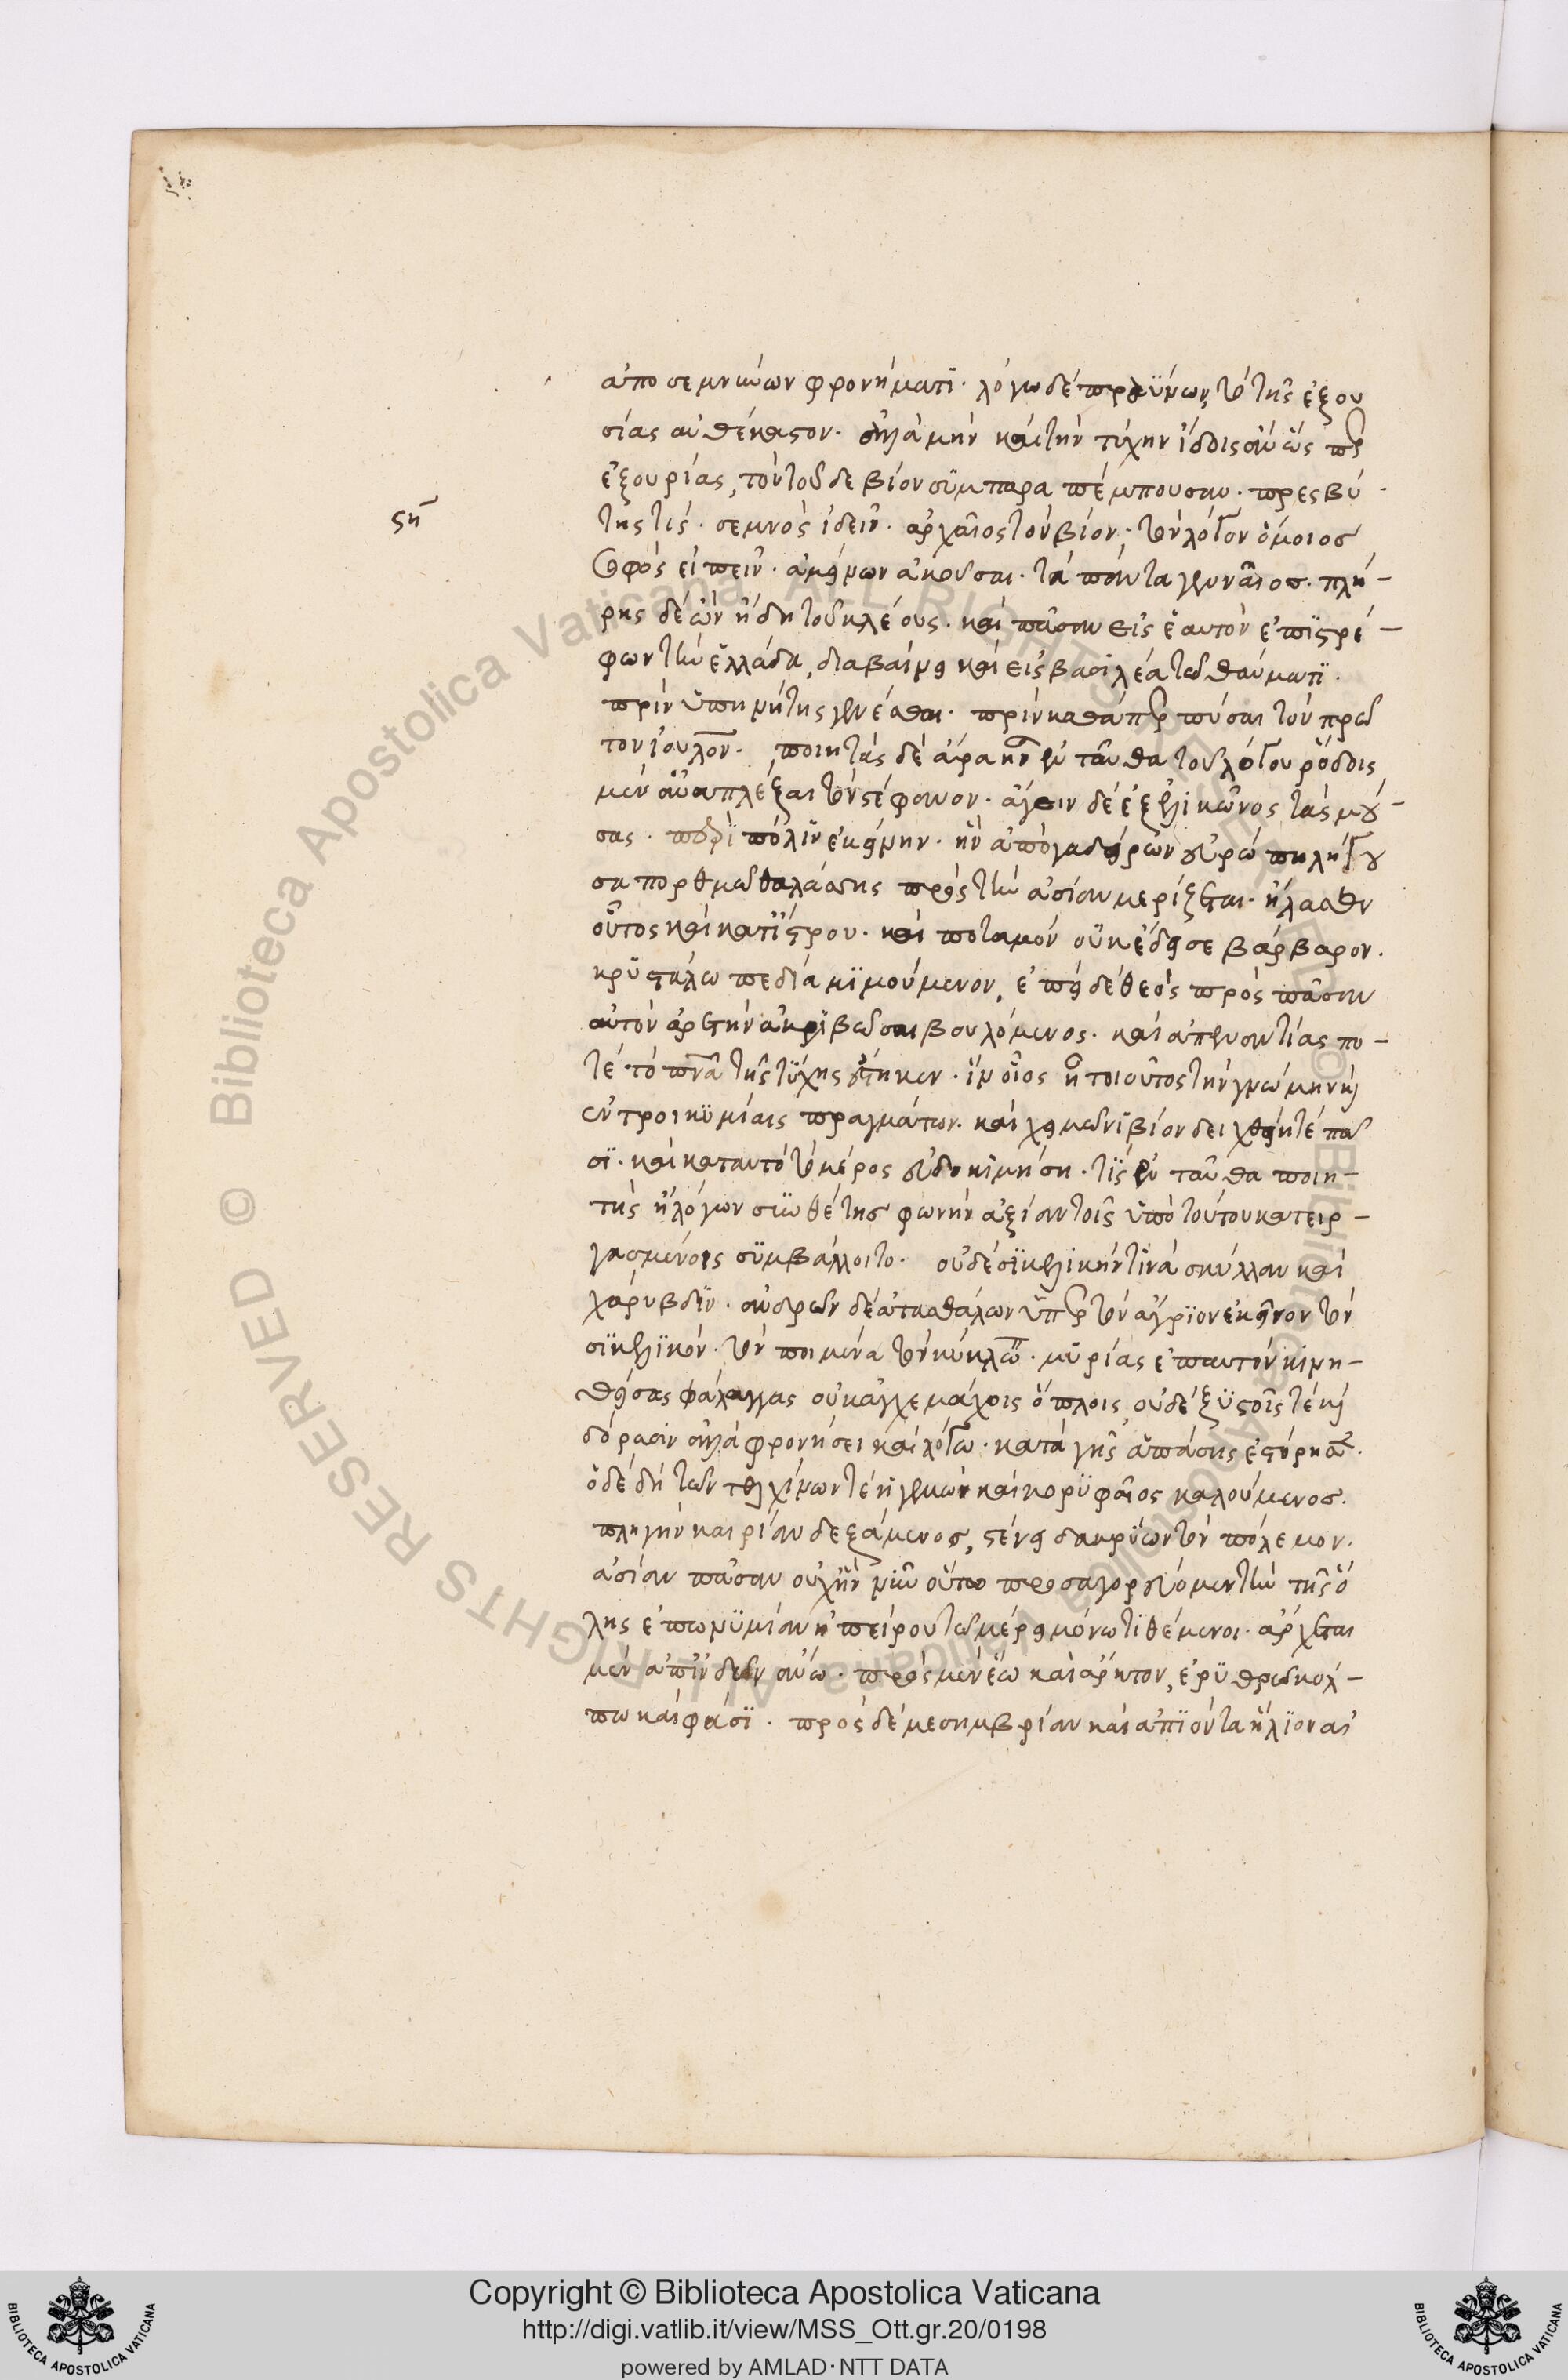 ἀποσεμνύων φρονήματι. λόγω δὲ πραΰνων, τὸ τῆς ἐξου
σίας αὐθέκαστον. ἀλλὰ μὴν καὶ τὴν τύχην ἴδοις ἂν ὡς
ἐξ οὐρίας, τὸν τοῦδε βίον συμπαραπέμπουσαν. πρεσβύ
της τίς. σεμνὸς ἰδεῖν. ἀρχαῖος τὸν βίον. τὸν λόγον ὅμοιος
ση
σοφὸς εἰπεῖν. ἀμείνων ἀκοῦσαι. τὰ πάντα γενναῖος. πλή-
ρης δὲ ὢν ἤδη τοῦ κλέους. καὶ πᾶσαν εἰς ἑαυτὸν ἐπιστρέ-
φων τὴν ἑλλάδα, διαβαίνει καὶ εἰς βασιλέα τῶ θαύματι.
πρὶν ὑπηνήτης γενέσθαι. πρὶν
τον ἴουλον. ποιητὰς δὲ ἄρα ἦν ἐνταῦθα τοῦ λόγου ῥόδοις
μὲν ἀναπλέξαι τὸν στέφανον. ἄγειν δὲ ἐξ ἑλικῶνος τὰς μού-
σας. πόλιν ἐκείνην. ἣν ἀπὸ γαδείρων εὐρώπη λήγου
σα πορθμῶ θαλάσσης πρὸς τὴν ἀσίαν μερίζεται. ἤλασεν
οὗτος καὶ κατ' ἴστρου. καὶ ποταμὸν οὐκ ἔδεισε βάρβαρον.
κρυστάλω πεδία κινούμενον, ἐπεὶ δὲ θεὸς πρὸς πᾶσαν
αὐτὸν ἀρετὴν ἀκριβῶσαι βουλόμενος. καὶ ἀπεναντίας πο-
τὲ τὸ πνεῦμα τῆς τύχης ἔστησεν. ἵν' οἷος ἦ τοιοῦτος τὴν γνώμην κἀν
ἐν τρικυμίαις πραγμάτων. καὶ χειμῶνι βίου δειχθείη τὲ πᾶ
σι. καὶ κατ' αὐτὸ τὸ μέρος εὐδοκιμήση. τίς ἐνταῦθα ποιη-
τὴς ἢ λόγων συνθέτης φωνὴν ἀξίαν τοῖς ὑπὸ τούτου κατειρ-
γασμένοις συμβάλλοιτο. οὐδὲ σικελικήν τινα σκύλλαν καὶ
χάρυβδιν. ἀνδρῶν δὲ ἀτασθάλων ὑπὲρ τὸν ἄγριον ἐκεῖνον τὸν
σικελικόν. τὸν ποιμένα τὸν κύκλωπα. μυρίας ἐπ' αὐτὸν κινη-
θείσας φάλαγγας οὐκ ἀγχεμάχοις ὅπλοις, οὐδὲ ξυστοῖς τὲ καὶ
δόρασιν ἀλλὰ φρονήσει καὶ λόγω. κατὰ γῆς ἁπάσης
ὁ δὲ δὴ τῶν τελχίνων τὲ ἡγεμὼν καὶ κορυφαῖος καλούμενος.
πληγὴν καιρίαν δεξάμενος, στένει δακρύων τὸν πόλεμον.
ἀσίαν πᾶσαν οὐχ ἣν νῦν οὕτω προσαγορεύομεν τὴν τῆς ὅ
λης ἐπωνυμίαν ἠπείρου τῶ μέρει μόνω τιθέμενοι. ἄρχεται
μὲν ἀπ' ἰνδῶν ἄνω. πρὸς μὲν ἕω καὶ ἄρκτον, ἐρυθρῶ κόλ-
πω καὶ φάσι. πρὸς δὲ μεσημβρίαν καὶ ἀπιόντα ἥλιον αἰ
Copyright © Biblioteca Apostolica Vaticana
http://digi.vatlib.it/view/MSS_Ott.gr.20/0198
powered by AMLAD·NTT DATA
BIBLIOTECA APOSTOLICA VATICANA
BIBLIOTECA APOSTOLICA VATICANA
© Biblioteca Apostolica Vaticana ALL RIGHTS RESERVED